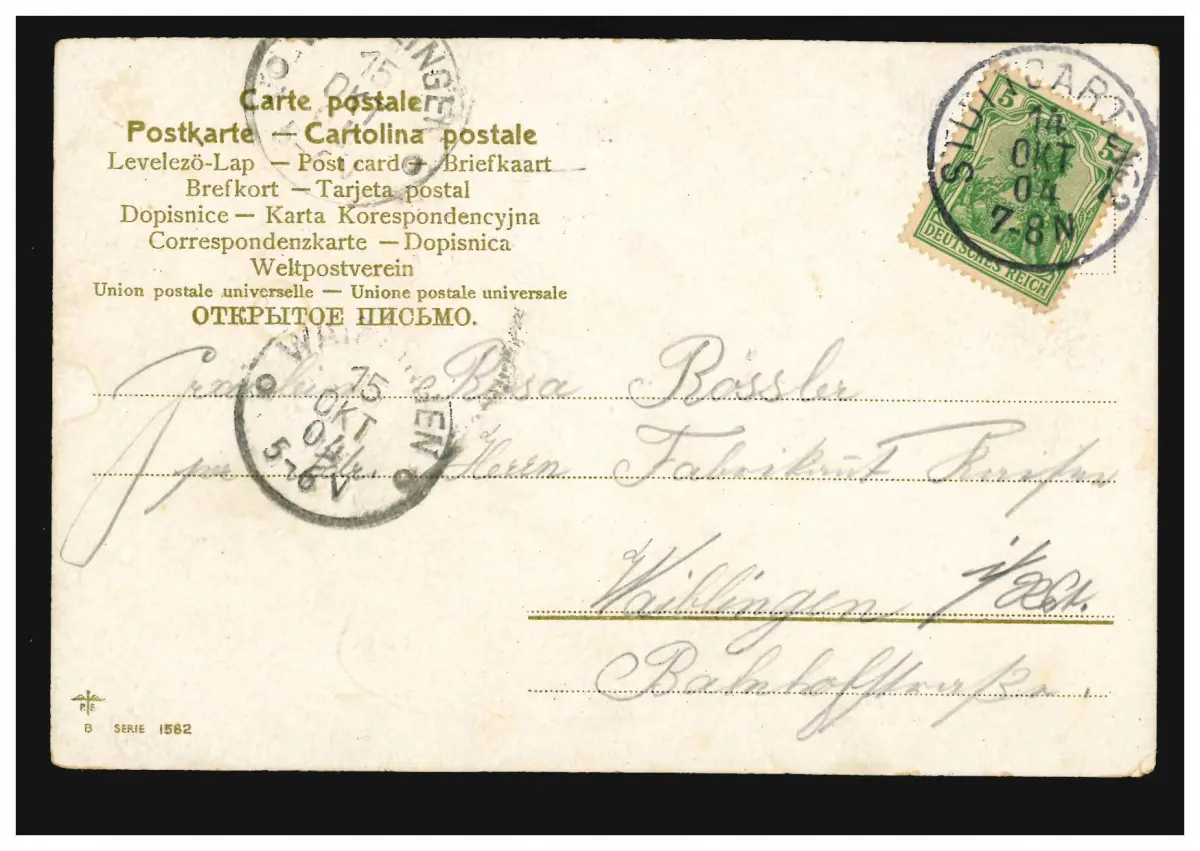 WAIBLINGEN
15
OKT
Carte postale
Postkarte — Cartolina postale
Levelező-Lap — Post card — Briefkaart
Brefkort — Tarjeta postal
Dopisnice — Karta Korespondencyjna
Correspondenzkarte — Dopisnica
Weltpostverein
Union postale universelle — Unione postale universale
ОТКРЫТОЕ ПИСЬМО.
STUTTGART
14
OKT
04
7-8 N
5 5
DEUTSCHES REICH
WAIBLINGEN
15
OKT
04
5-6 V
Fräulein Rosa Rössler
Herrn Fabrikant
Waiblingen
Bahnhofstraße.
B SERIE 1582